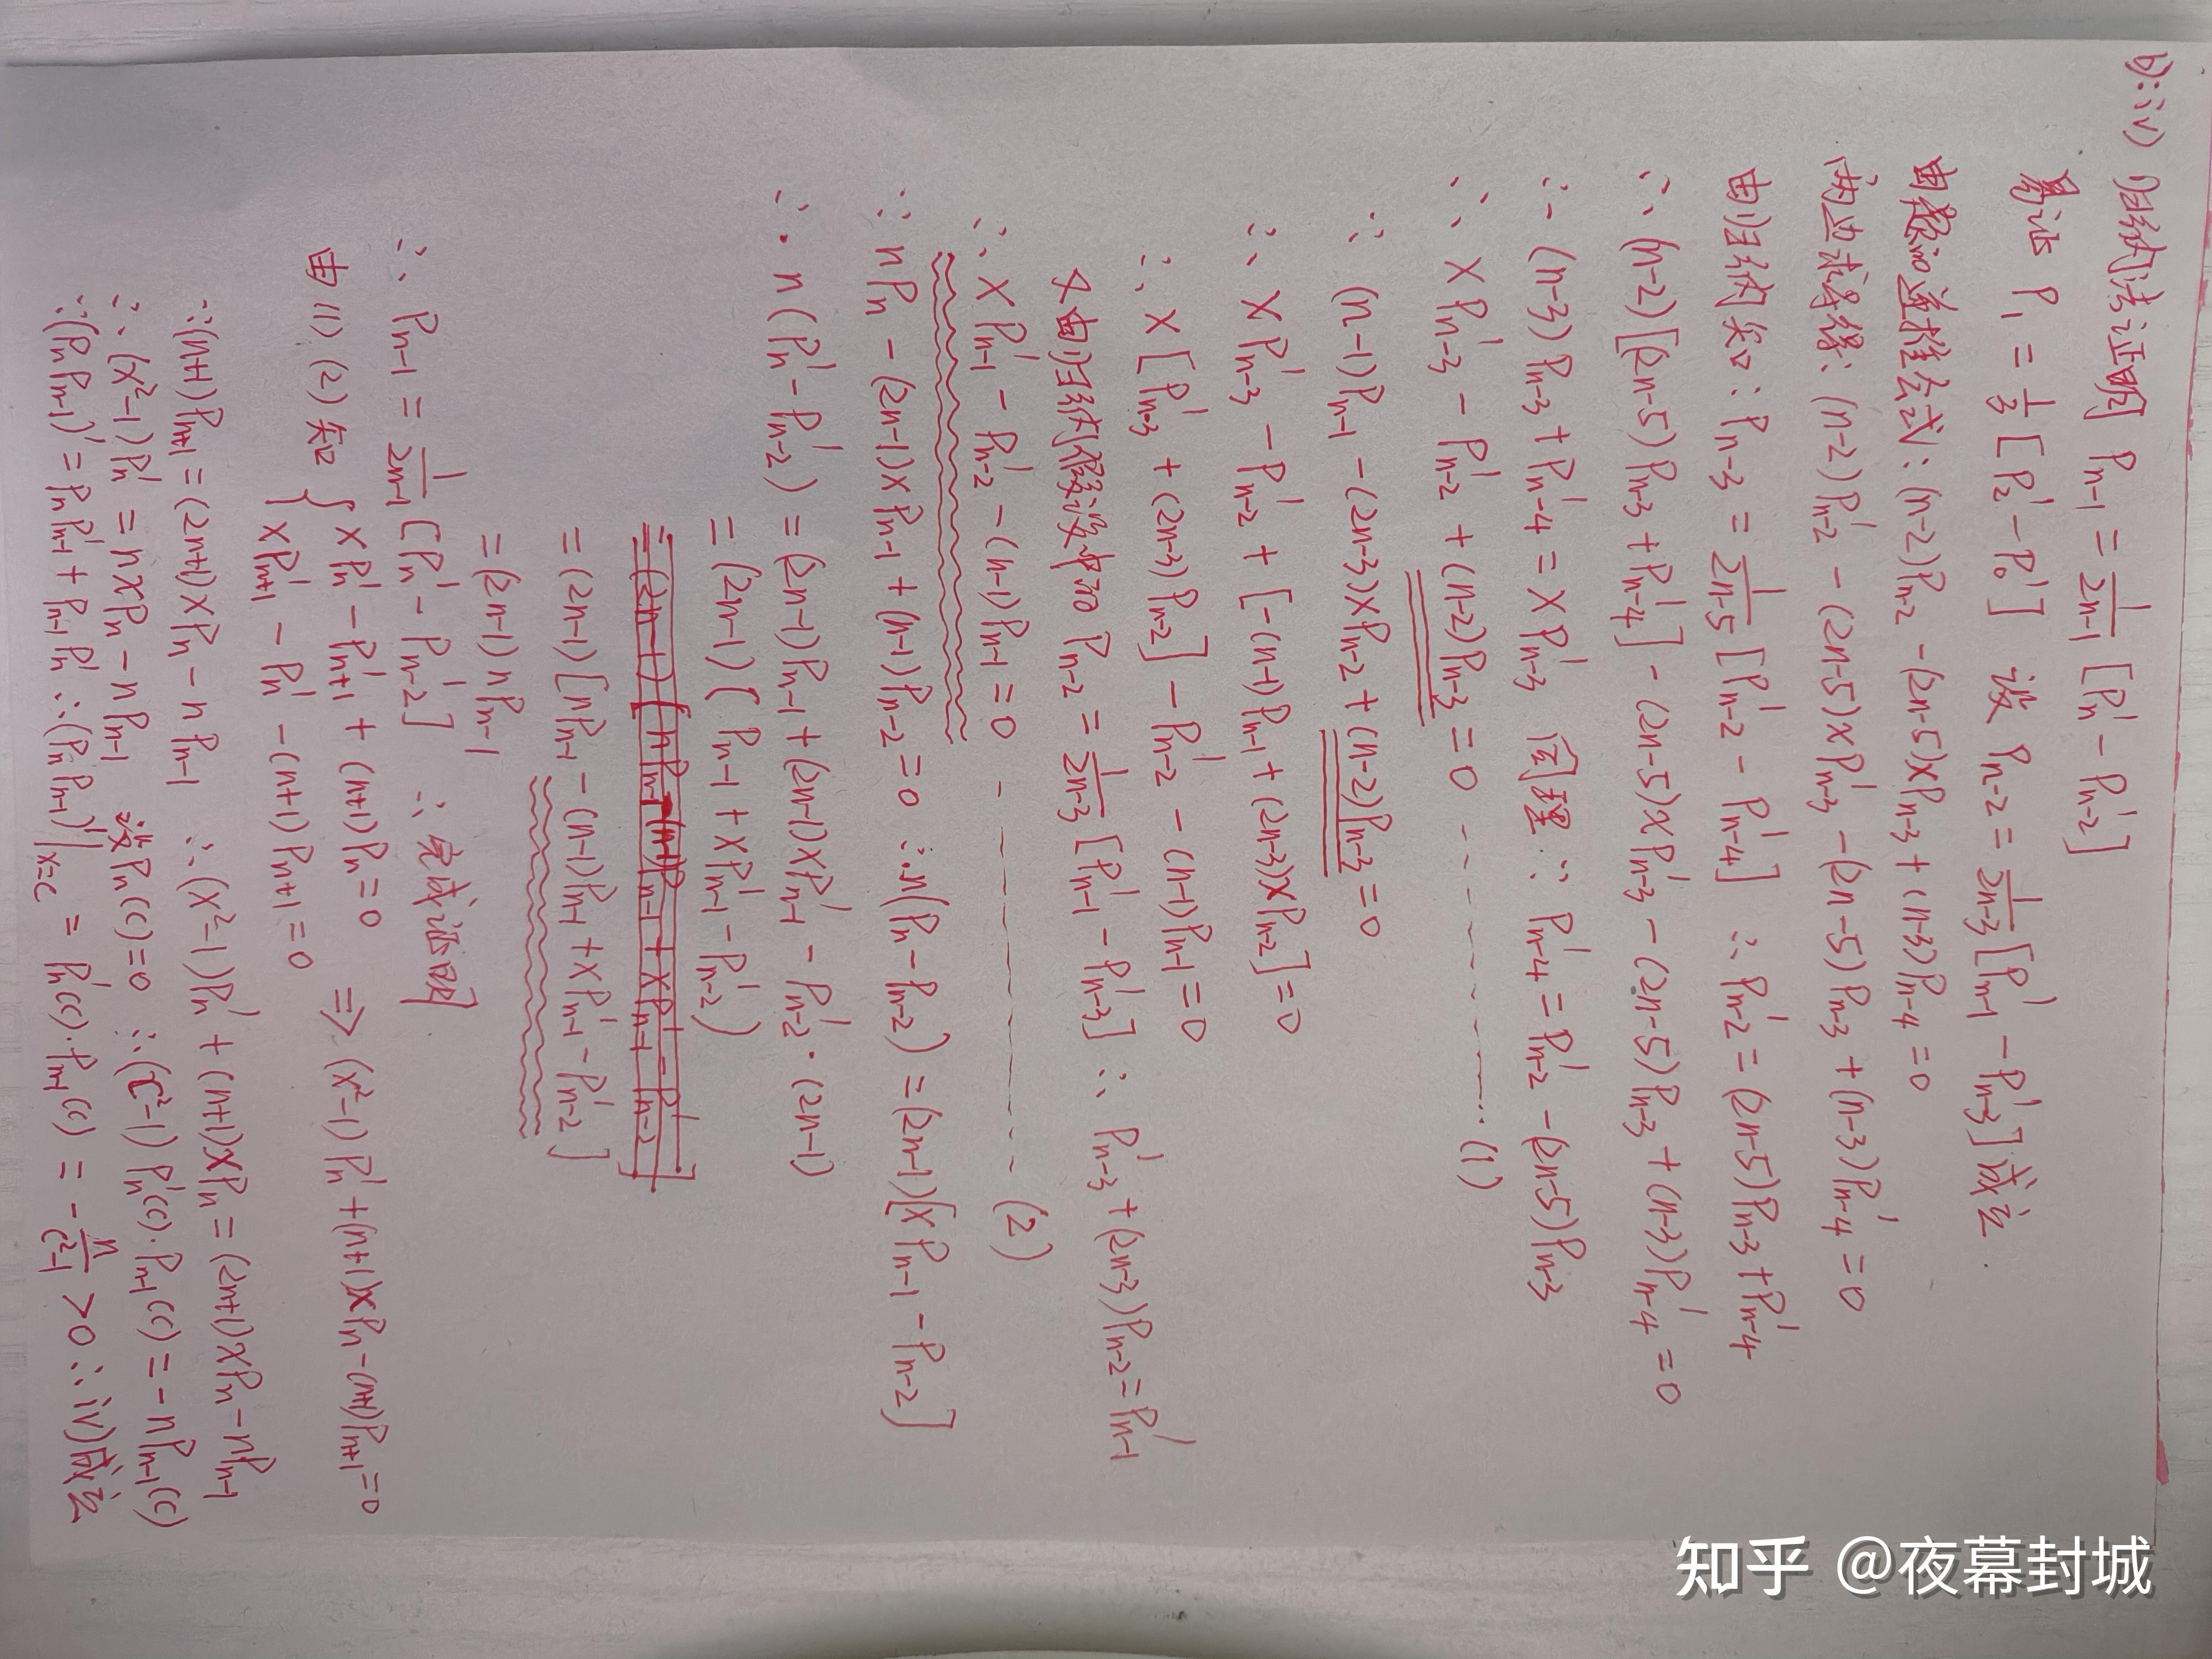 b): iv) 归纳法证明 Pn-1 = 1/(2n-1) [P'n - P'n-2]
易证 P1 = 1/3 [P'2 - P'0] 设 Pn-2 = 1/(2n-3) [P'n-1 - P'n-3] 成立.
由题的递推公式: (n-2)Pn-2 - (2n-5)xPn-3 + (n-3)Pn-4 = 0
两边求导得: (n-2)P'n-2 - (2n-5)xP'n-3 - (2n-5)Pn-3 + (n-3)P'n-4 = 0
由归纳知: Pn-3 = 1/(2n-5) [P'n-2 - P'n-4] ∴ P'n-2 = (2n-5)Pn-3 + P'n-4
∴ (n-2)[(2n-5)Pn-3 + P'n-4] - (2n-5)xP'n-3 - (2n-5)Pn-3 + (n-3)P'n-4 = 0
∴ (n-3)Pn-3 + P'n-4 = xP'n-3 同理 ∵ P'n-4 = P'n-2 - (2n-5)Pn-3
∴ xP'n-3 - P'n-2 + (n-2)Pn-3 = 0 ------- (1)
∵ (n-1)Pn-1 - (2n-3)xPn-2 + (n-2)Pn-3 = 0
∴ xP'n-3 - P'n-2 + [-(n-1)Pn-1 + (2n-3)xPn-2] = 0
∴ x[P'n-3 + (2n-3)Pn-2] - P'n-2 - (n-1)Pn-1 = 0
又由归纳假设中的 Pn-2 = 1/(2n-3) [P'n-1 - P'n-3] ∴ P'n-3 + (2n-3)Pn-2 = P'n-1
∴ xP'n-1 - P'n-2 - (n-1)Pn-1 = 0 ------- (2)
∵ nPn - (2n-1)xPn-1 + (n-1)Pn-2 = 0 ∴ n(Pn - Pn-2) = (2n-1)[xPn-1 - Pn-2]
∴ n(P'n - P'n-2) = (2n-1)Pn-1 + (2n-1)xP'n-1 - P'n-2·(2n-1)
= (2n-1)(Pn-1 + xP'n-1 - P'n-2)
= (2n-1)[nPn-1 - (n-1)Pn-1 + xP'n-1 - P'n-2]
= (2n-1)nPn-1
∴ Pn-1 = 1/(2n-1) [P'n - P'n-2] ∴ 完成证明
由 (1) (2) 知 { xP'n - P'n+1 + (n+1)Pn = 0 ⇒ (x²-1)P'n + (n+1)xPn - (n+1)Pn+1 = 0
xP'n+1 - P'n - (n+1)Pn+1 = 0
∵ (n+1)Pn+1 = (2n+1)xPn - nPn-1 ∴ (x²-1)P'n + (n+1)xPn = (2n+1)xPn - nPn-1
∴ (x²-1)P'n = nxPn - nPn-1 Pn(c)=0 ∴ (c²-1)P'n(c)·Pn-1(c) = -nPn-1(c)
∵ (PnPn-1)' = PnP'n-1 + Pn-1P'n ∴ (PnPn-1)'|x=c = P'n(c)·Pn-1(c) = - n/(c²-1) > 0 ∴ iv)成立
知乎 @夜幕封城